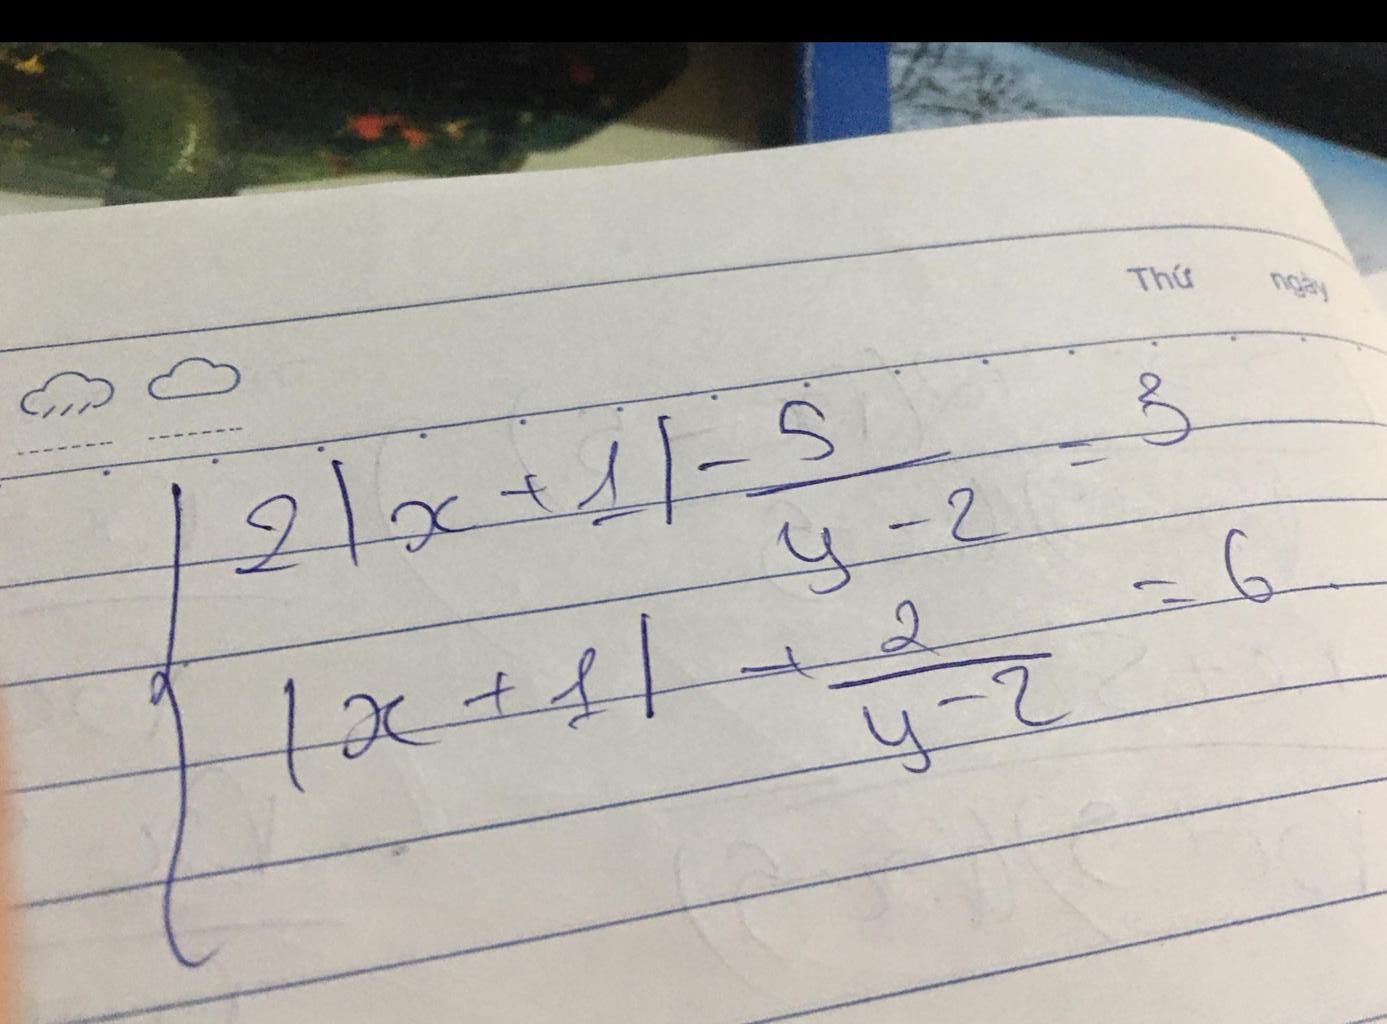 Thứ ngày
2|x + 1| - 5/(y - 2) = 3
|x + 1| + 2/(y - 2) = 6